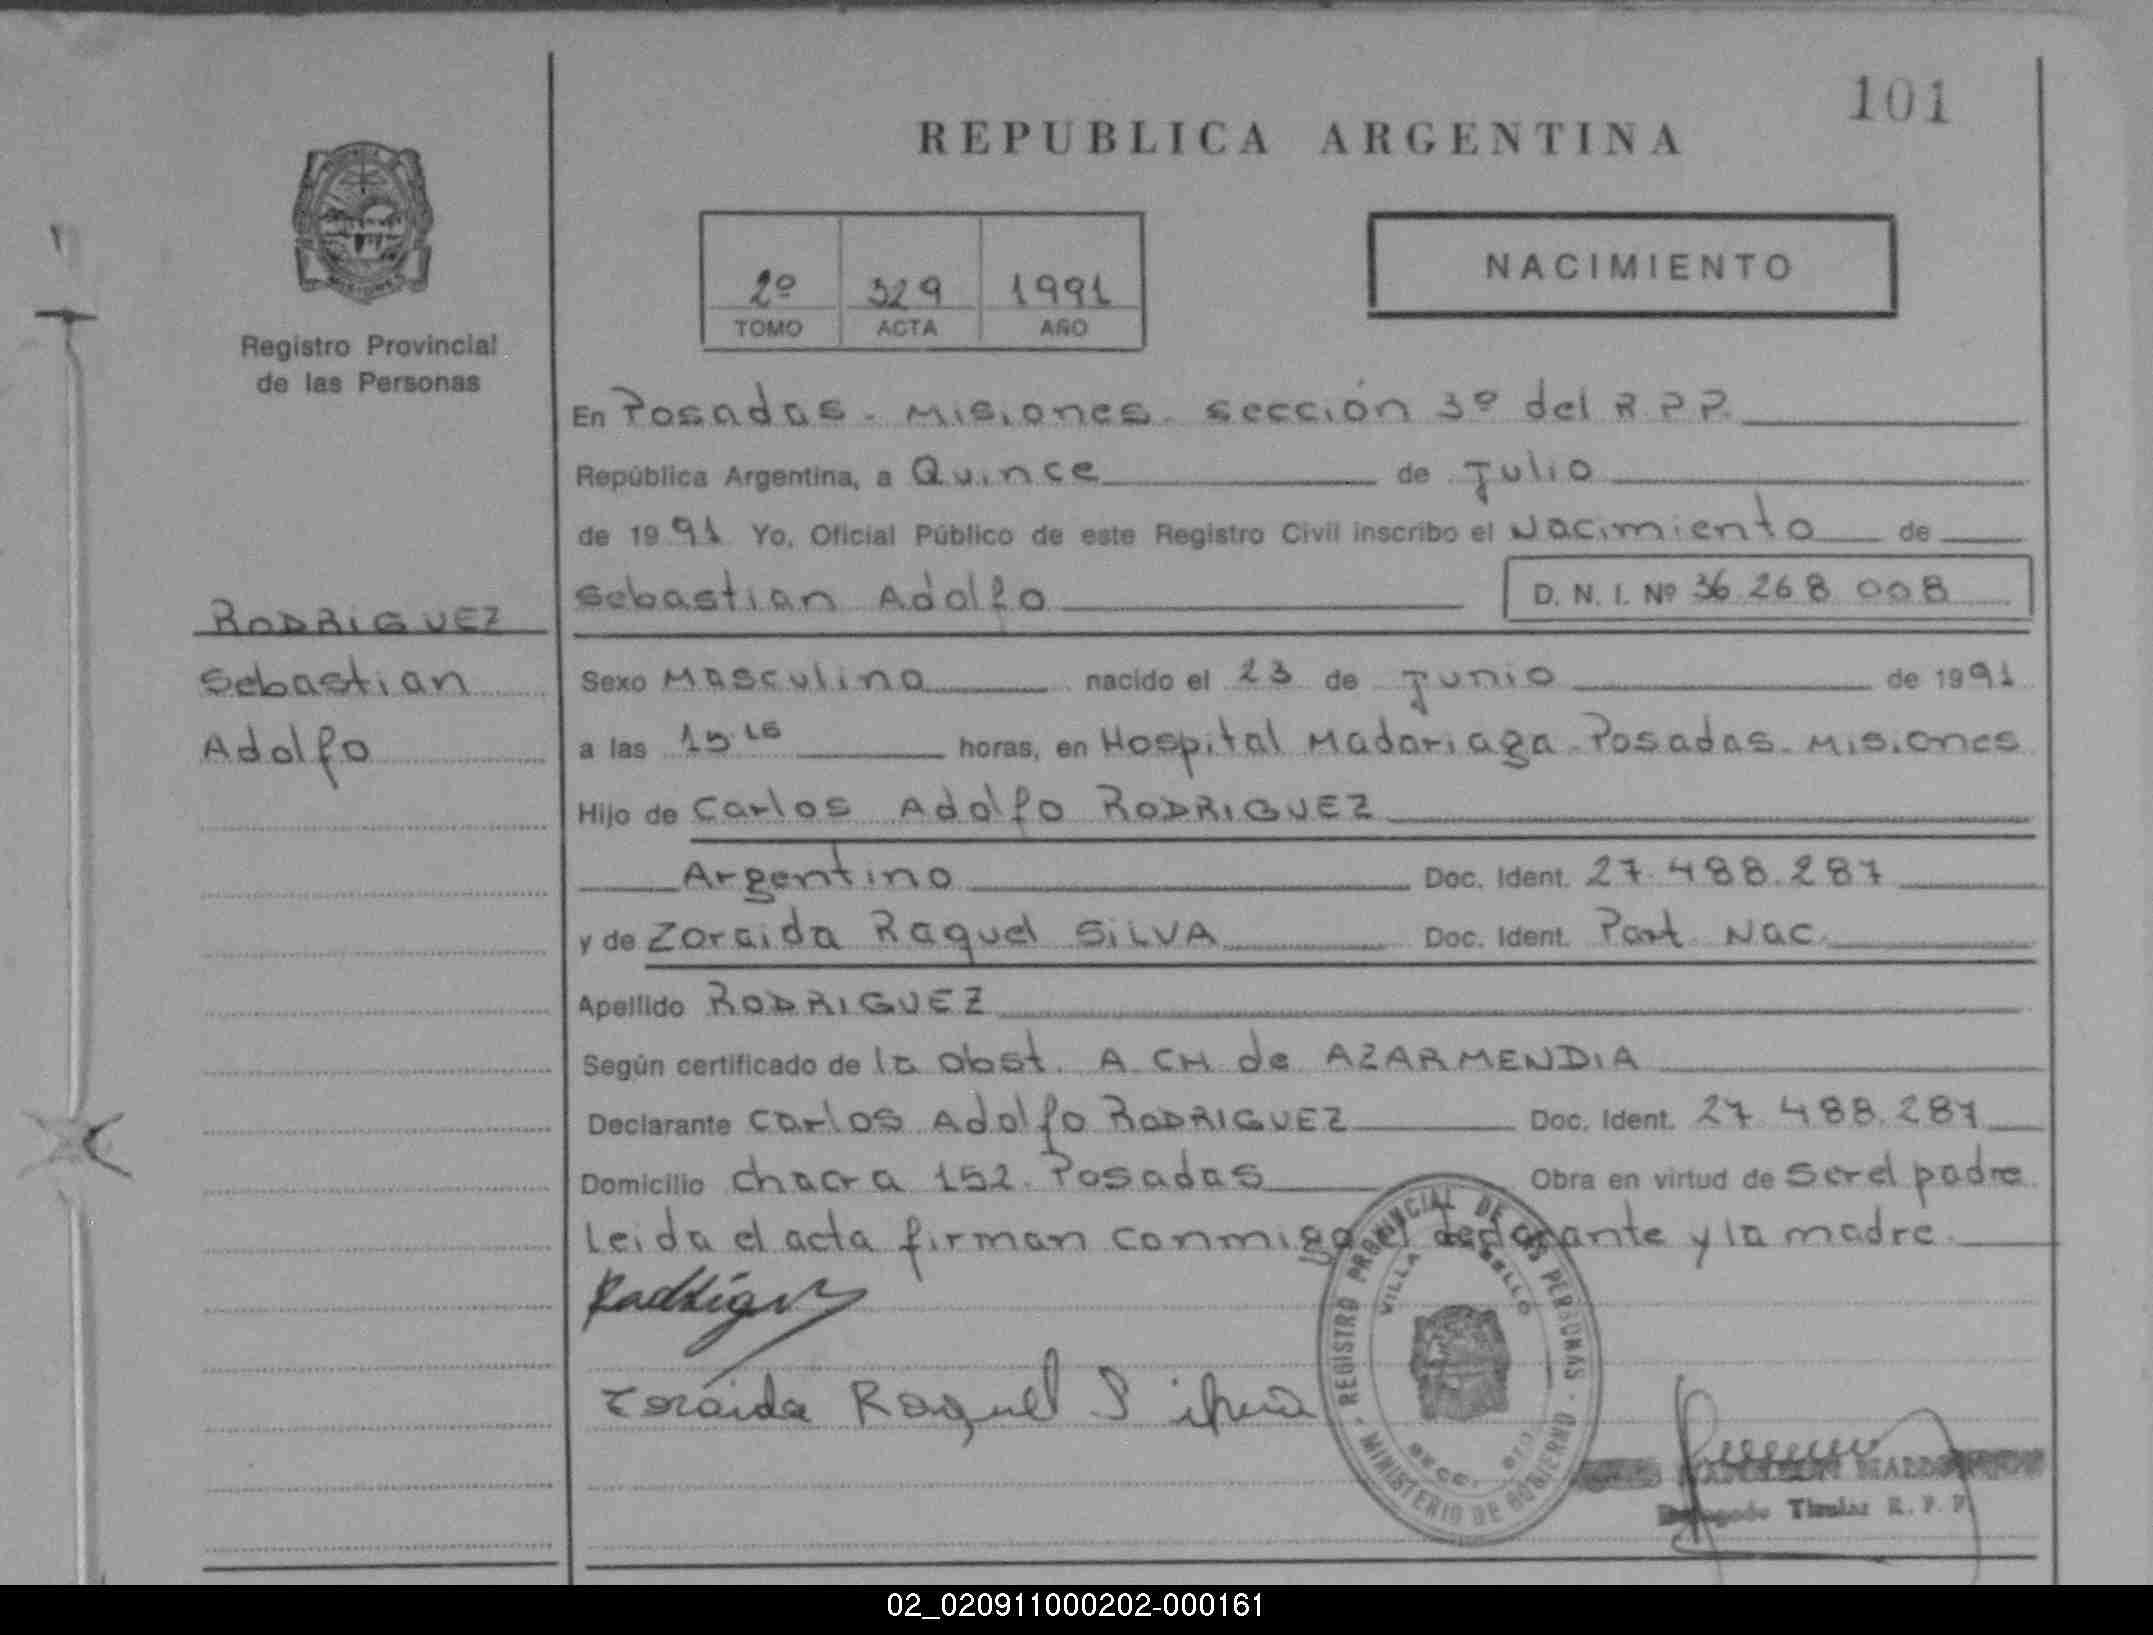 101
REPUBLICA ARGENTINA
NACIMIENTO
2º 329 1991
TOMO ACTA AÑO
Registro Provincial
de las Personas
En Posadas - Misiones - sección 3º del R.P.P.
República Argentina, a Quince de Julio
de 1991 Yo, Oficial Público de este Registro Civil inscribo el Nacimiento de
Sebastian Adolfo D. N. I. Nº 36 268 008
RODRIGUEZ
Sebastian
Adolfo
Sexo Masculino nacido el 23 de Junio de 1991
a las horas, en Hospital Madariaga - Posadas - Misiones
Hijo de Carlos Adolfo RODRIGUEZ
Argentino Doc. Ident. 27.488.287
y de Zoraida Raquel SILVA Doc. Ident. Part. Nac.
Apellido RODRIGUEZ
Según certificado de la Obst. A. CH de AZARMENDIA
Declarante Carlos Adolfo RODRIGUEZ Doc. Ident. 27.488.287
Domicilio chacra 152 - Posadas Obra en virtud de ser el padre
Leida el acta firman conmigo el declarante y la madre.
Zoraida Raquel Silva
REGISTRO PROVINCIAL DE LAS PERSONAS - MINISTERIO DE GOBIERNO -
VILLA
Delegado Titular R. P. P.
02_020911000202-000161